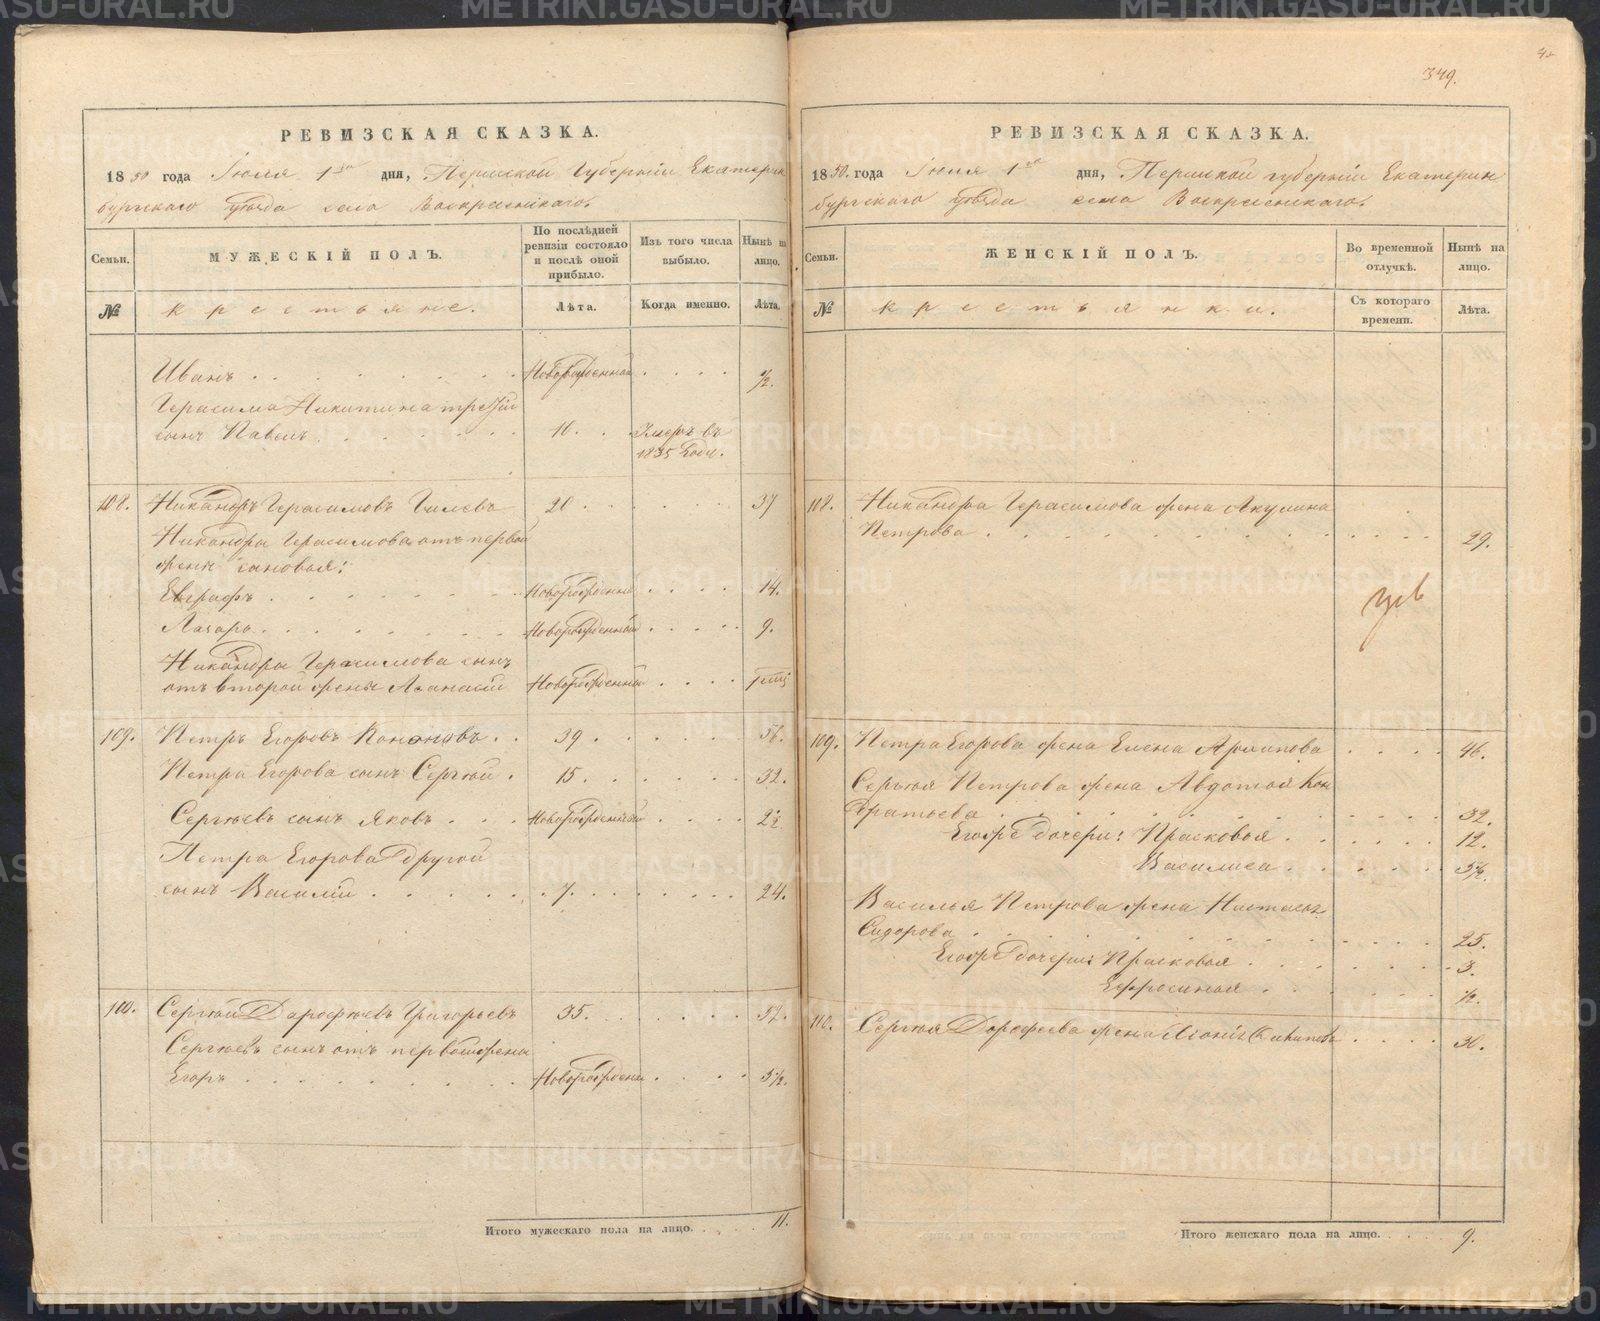 349.
РЕВИЗСКАЯ СКАЗКА.
1850 года Июля 1го дня, Пермской Губерніи Екатерин
бургскаго уѣзда села Воскресенскаго.
Семьи.
МУЖЕСКІЙ ПОЛЪ.
По послѣдней ревизіи состояло и послѣ оной прибыло.
Изъ того числа выбыло.
Нынѣ на лицо.
№
крестьяне.
Лѣта.
Когда именно.
Лѣта.
Иванъ Новорожденной 1/2.
Герасима Никитина третій
сынъ Павелъ 10. Умеръ въ
1835 Году.
108. Никандръ Герасимовъ Гилевъ 20 37
Никандры Герасимова отъ первой
жены сыновья:
Евграфъ Новорожденный 14.
Лазарь Новорожденный 9.
Никандры Герасимова сынъ
отъ второй жены Афанасій Новорожденный
109. Петръ Егоровъ Кононовъ 39 56.
Петра Егорова сынъ Сергѣй 15. 32.
Сергѣевъ сынъ Яковъ Новорожденный 2 1/2
Петра Егорова другой
сынъ Василій 7. 24.
110. Сергѣй Дорофѣевъ Григорьевъ 35. 52.
Сергѣевъ сынъ отъ первой жены
Егоръ Новорожденны 3 1/2.
Итого мужескаго пола на лицо. 11.
РЕВИЗСКАЯ СКАЗКА.
1850. года Июля 1го дня, Пермской губерніи Екатерин
бургскаго уѣзда села Воскресенскаго.
Семьи.
ЖЕНСКІЙ ПОЛЪ.
Во временной отлучкѣ.
Нынѣ на лицо.
№
крестьянки.
Съ котораго времени.
Лѣта.
108. Никандра Герасимова жена Акулина
Петрова 29.
109. Петра Егорова жена Елена Архипова 46.
Сергѣя Петрова жена Авдотья Кон
дратьева 32.
Егожъ дочери: Прасковья 12.
Василиса 5 1/2.
Василья Петрова жена Настасья
Сидорова 25.
Егожъ дочери: Прасковья 3.
Ефросинья 1/2.
110. Сергѣя Дорофеева жена 30.
Итого женскаго пола на лицо. 9.
METRIKI.GASO-URAL.RU